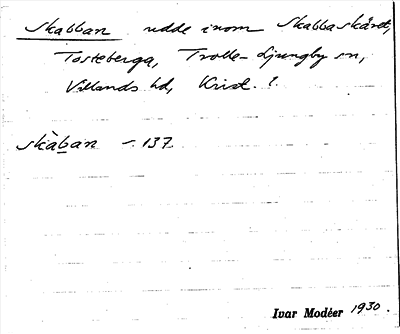 Skabban udde inom Skabbaskäret,
Tosteberga, Trolle-Ljungby sn,
Villands hd, Krist. l.
skàban - 137
Ivar Modéer 1930.